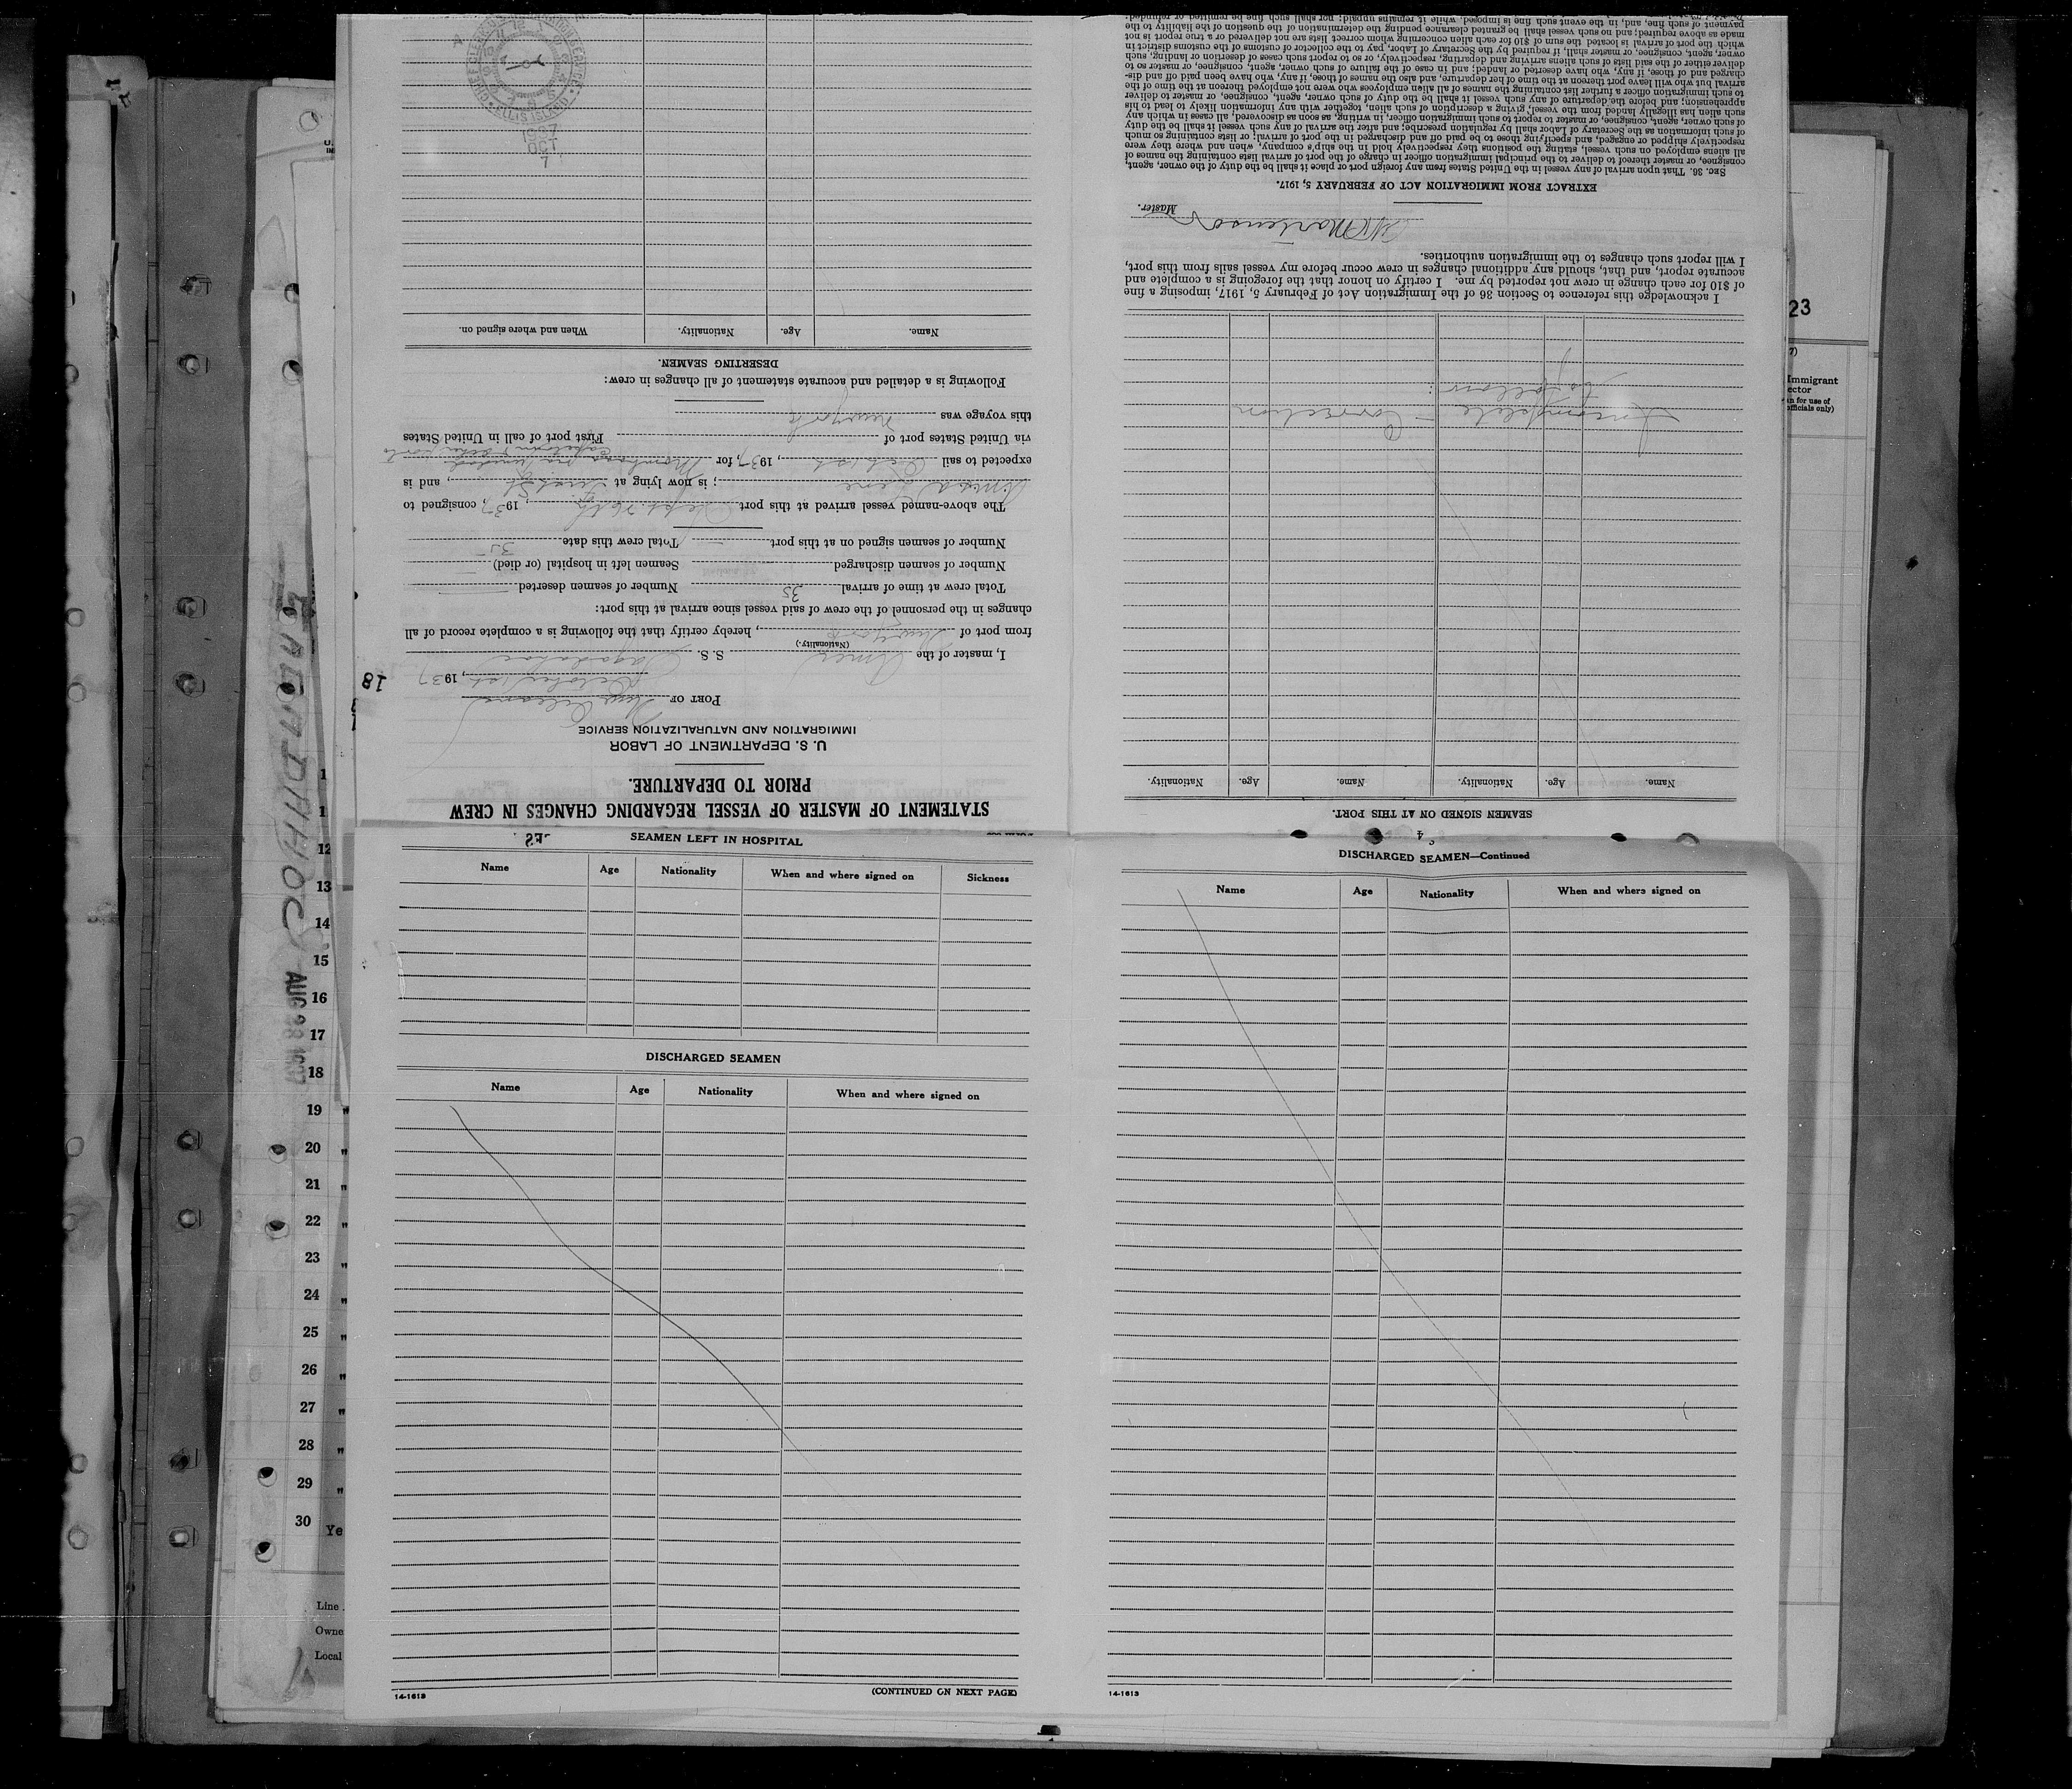 STATEMENT OF MASTER OF VESSEL REGARDING CHANGES IN CREW
PRIOR TO DEPARTURE.
U. S. DEPARTMENT OF LABOR
IMMIGRATION AND NATURALIZATION SERVICE
PORT OF New Orleans
October 1st, 1937
18
I, master of the Amer S. S. Sagadahoc
(Nationality.)
from port of New York, hereby certify that the following is a complete record of all
changes in the personnel of the crew of said vessel since arrival at this port:
Total crew at time of arrival 35 Number of seamen deserted
Number of seamen discharged Seamen left in hospital (or died)
Number of seamen signed on at this port Total crew this date 35
The above-named vessel arrived at this port Sept. 26th, 1937, consigned to
Line; is now lying at St., and is
expected to sail Oct 1st, 1937, for Mombasa
via United States port of First port of call in United States
this voyage was New York
Following is a detailed and accurate statement of all changes in crew:
DESERTING SEAMEN.
Name. Age. Nationality. When and where signed on.
ELLIS ISLAND
1937
OCT
7
SEAMEN SIGNED ON AT THIS PORT.
Name. Age. Nationality. Name. Age. Nationality.
Incomplete – Correction
to follow
I acknowledge this reference to Section 36 of the Immigration Act of February 5, 1917, imposing a fine
of $10 for each change in crew not reported by me. I certify on honor that the foregoing is a complete and
accurate report, and that, should any additional changes in crew occur before my vessel sails from this port,
I will report such changes to the immigration authorities.
Martenson
Master.
EXTRACT FROM IMMIGRATION ACT OF FEBRUARY 5, 1917.
SEC. 36. That upon arrival of any vessel in the United States from any foreign port or place it shall be the duty of the owner, agent,
consignee, or master thereof to deliver to the principal immigration officer in charge of the port of arrival lists containing the names of
all aliens employed on such vessel, stating the positions they respectively hold in the ship's company, when and where they were
respectively shipped or engaged, and specifying those to be paid off and discharged in the port of arrival; or lists containing so much
of such information as the Secretary of Labor shall by regulation prescribe; and after the arrival of any such vessel it shall be the duty
of such owner, agent, consignee, or master to report to such immigration officer, in writing, as soon as discovered, all cases in which any
such alien has illegally landed from the vessel, giving a description of such alien, together with any information likely to lead to his
apprehension; and before the departure of any such vessel it shall be the duty of such owner, agent, consignee, or master to deliver
to such immigration officer a further list containing the names of all alien employees who were not employed thereon at the time of the
arrival but who will leave port thereon at the time of her departure, and also the names of those, if any, who have been paid off and dis-
charged and of those, if any, who have deserted or landed; and in case of the failure of such owner, agent, consignee, or master so to
deliver either of the said lists of such aliens arriving and departing, respectively, or so to report such cases of desertion or landing, such
owner, agent, consignee, or master shall, if required by the Secretary of Labor, pay to the collector of customs of the customs district in
which the port of arrival is located the sum of $10 for each alien concerning whom correct lists are not delivered or a true report is not
made as above required; and no such vessel shall be granted clearance pending the determination of the question of the liability to the
payment of such fine, and, in the event such fine is imposed, while it remains unpaid; nor shall such fine be remitted or refunded:
4
SEAMEN LEFT IN HOSPITAL
Name Age Nationality When and where signed on Sickness
DISCHARGED SEAMEN
Name Age Nationality When and where signed on
14-1613
(CONTINUED ON NEXT PAGE)
DISCHARGED SEAMEN—Continued
Name Age Nationality When and where signed on
14-1613
23
Immigrant
ector
n for use of
officials only)
AUG 28 1937
12
13
14
15
16
17
18
19
20
21
22
23
24
25
26
27
28
29
30 Ye
Line
Owne
Local